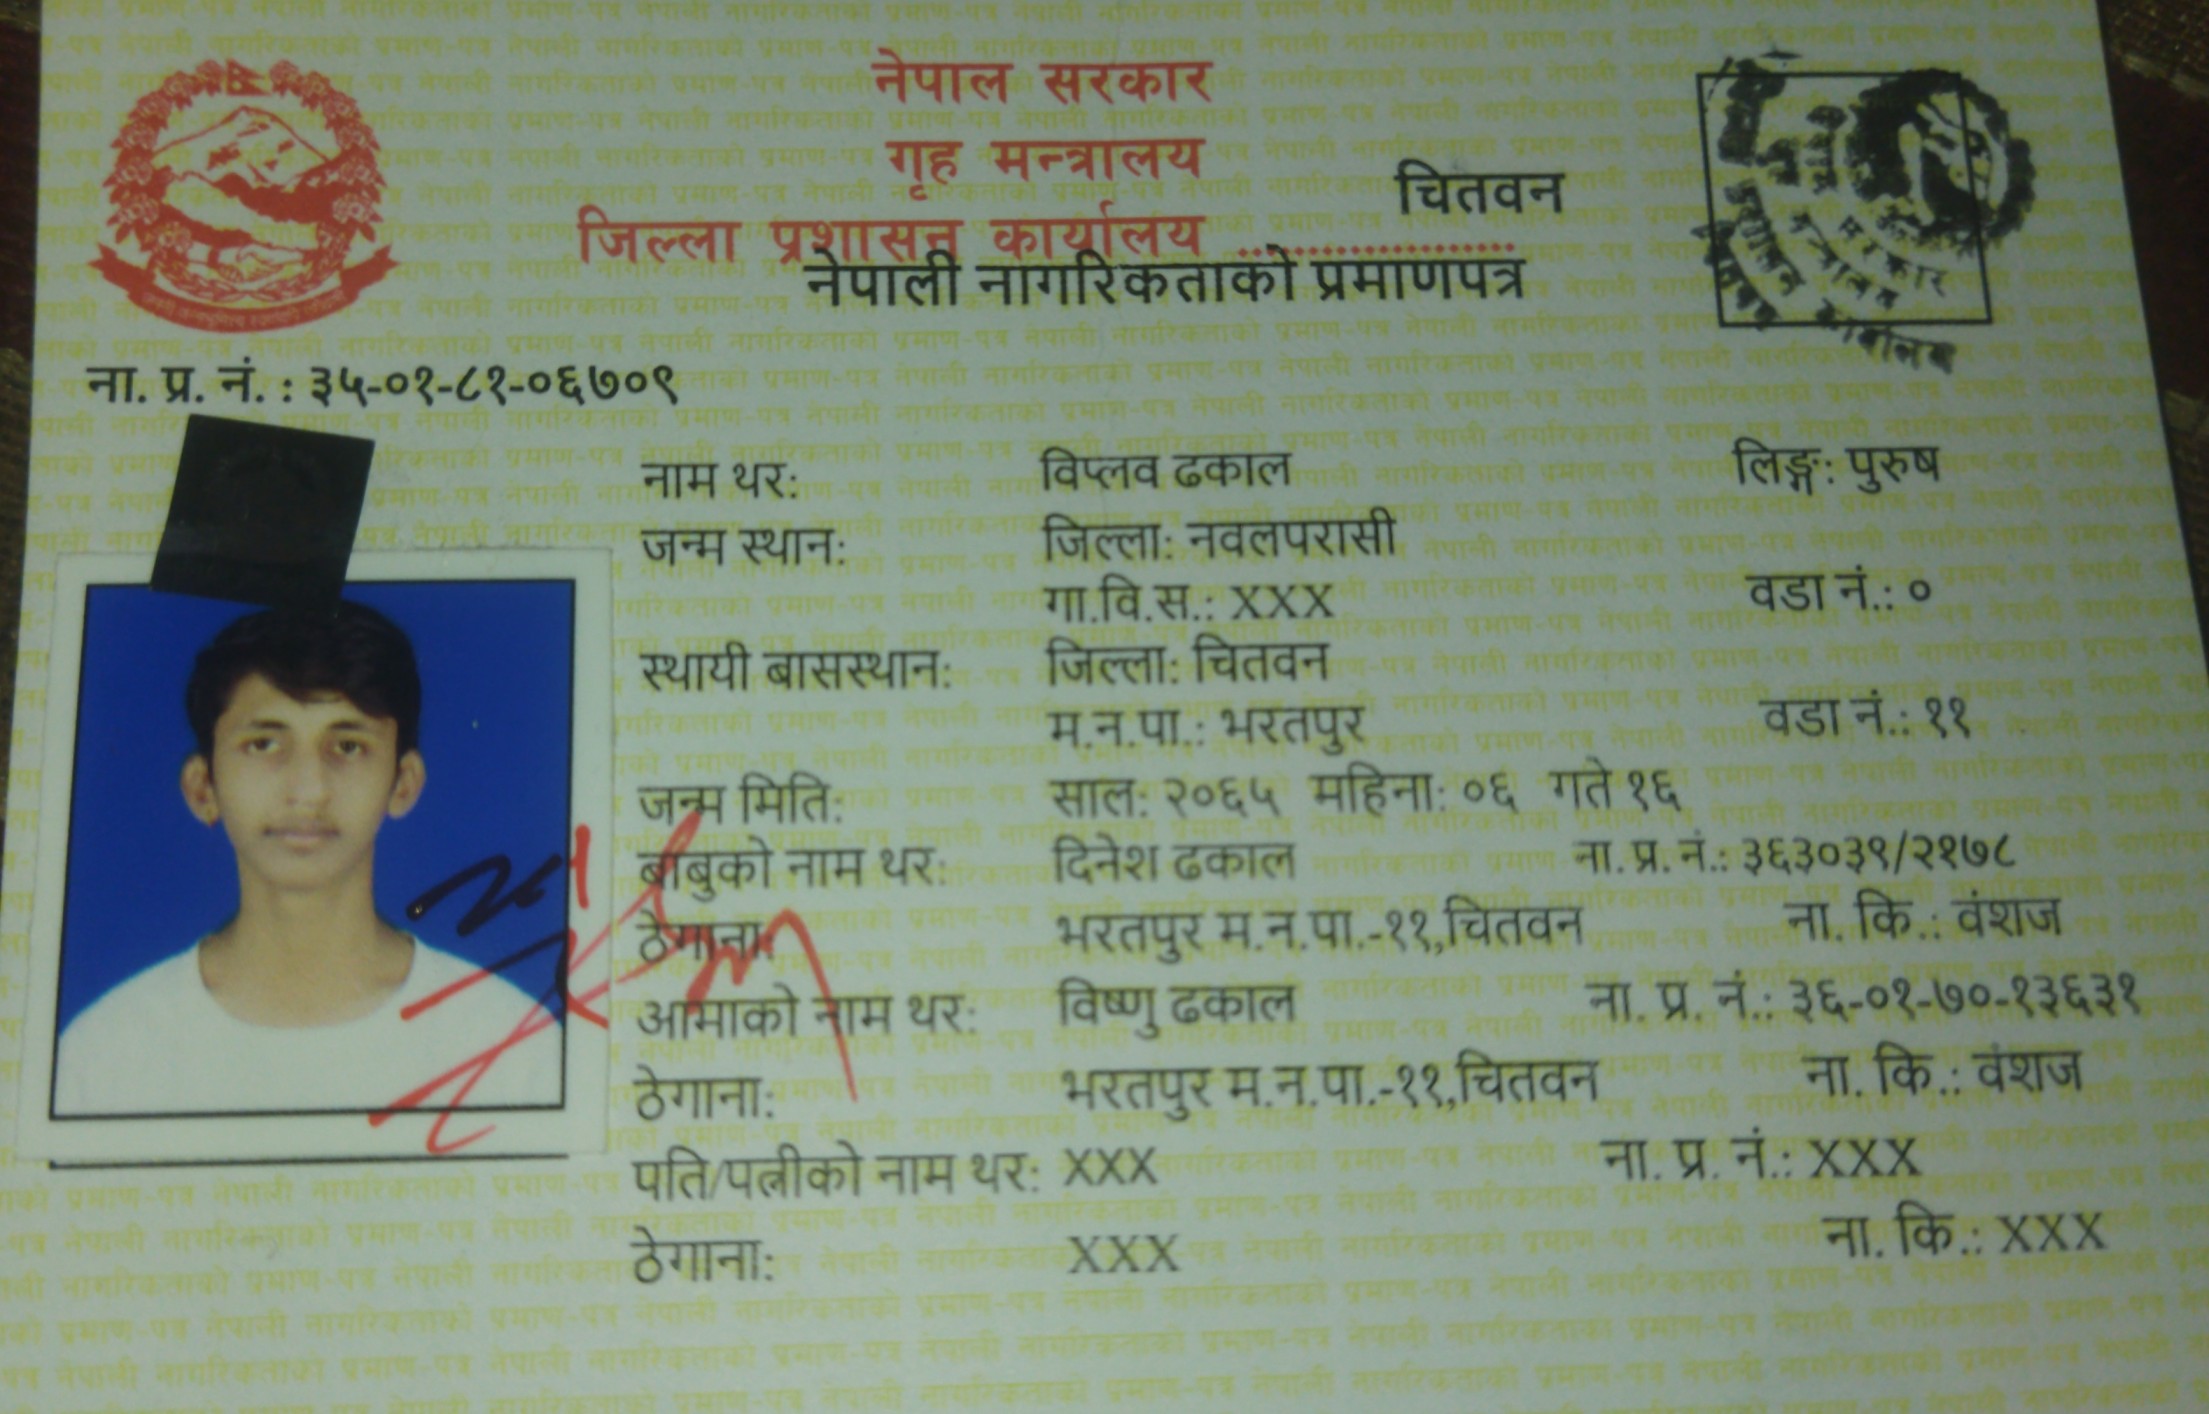 नेपाल सरकार
गृह मन्त्रालय
जिल्ला प्रशासन कार्यालय ....................
चितवन
नेपाली नागरिकताको प्रमाणपत्र
ना. प्र. नं. : ३५-०१-८१-०६७०९
नाम थर: विप्लव ढकाल लिङ्ग: पुरुष
जन्म स्थान: जिल्ला: नवलपरासी
गा.वि.स.: XXX वडा नं.: ०
स्थायी बासस्थान: जिल्ला: चितवन
म.न.पा.: भरतपुर वडा नं.: ११
जन्म मिति: साल: २०६५ महिना: ०६ गते १६
बाबुको नाम थर: दिनेश ढकाल ना. प्र. नं.: ३६३०३९/२१७८
ठेगाना: भरतपुर म.न.पा.-११,चितवन ना. कि.: वंशज
आमाको नाम थर: विष्णु ढकाल ना. प्र. नं.: ३६-०१-७०-१३६३१
ठेगाना: भरतपुर म.न.पा.-११,चितवन ना. कि.: वंशज
पति/पत्नीको नाम थर: XXX ना. प्र. नं.: XXX
ठेगाना: XXX ना. कि.: XXX